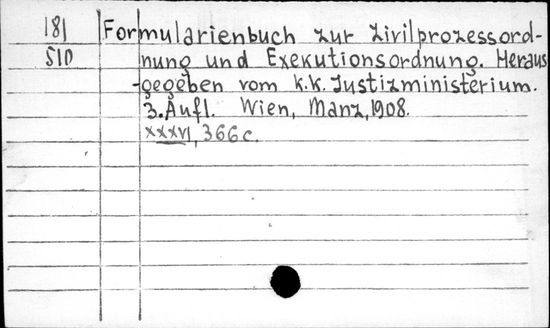 181 Formularienbuch zur Zivilprozessord-
510 nung und Exekutionsordnung. Heraus
-gegeben vom k.k. Justizministerium.
3. Aufl. Wien, Manz, 1908.
XXXVI, 366 c.